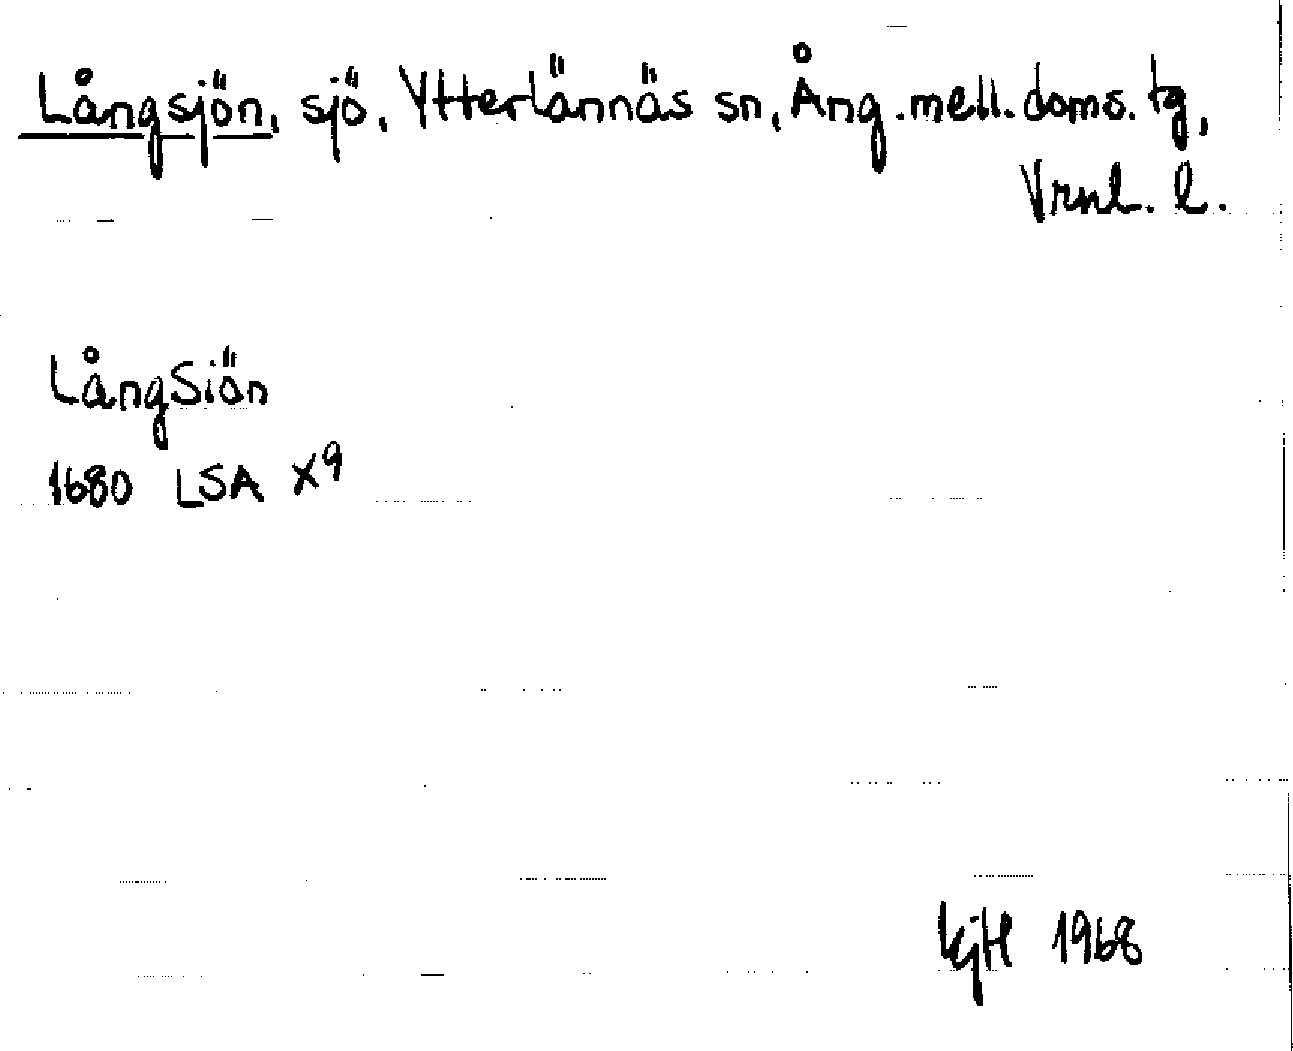 Långsjön, sjö, Ytterlännäs sn, Ång.mell.doms.tg,
Vrnl. l.
LångSiön
1680 LSA X9
KjH 1968